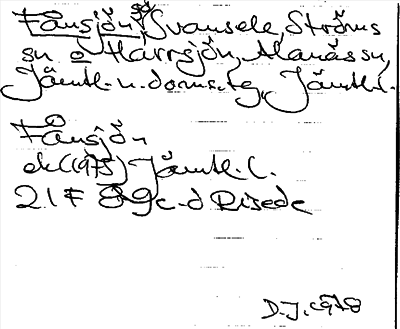 Fånsjön, sö Svansele, Ströms
sn o Harrsjön, Alanäs sn,
Jämtl. n. doms.tg, Jämtl. l.
Fånsjön
ek (1975) Jämtl. l.
21F 89c-d Risede
D.J. 1978